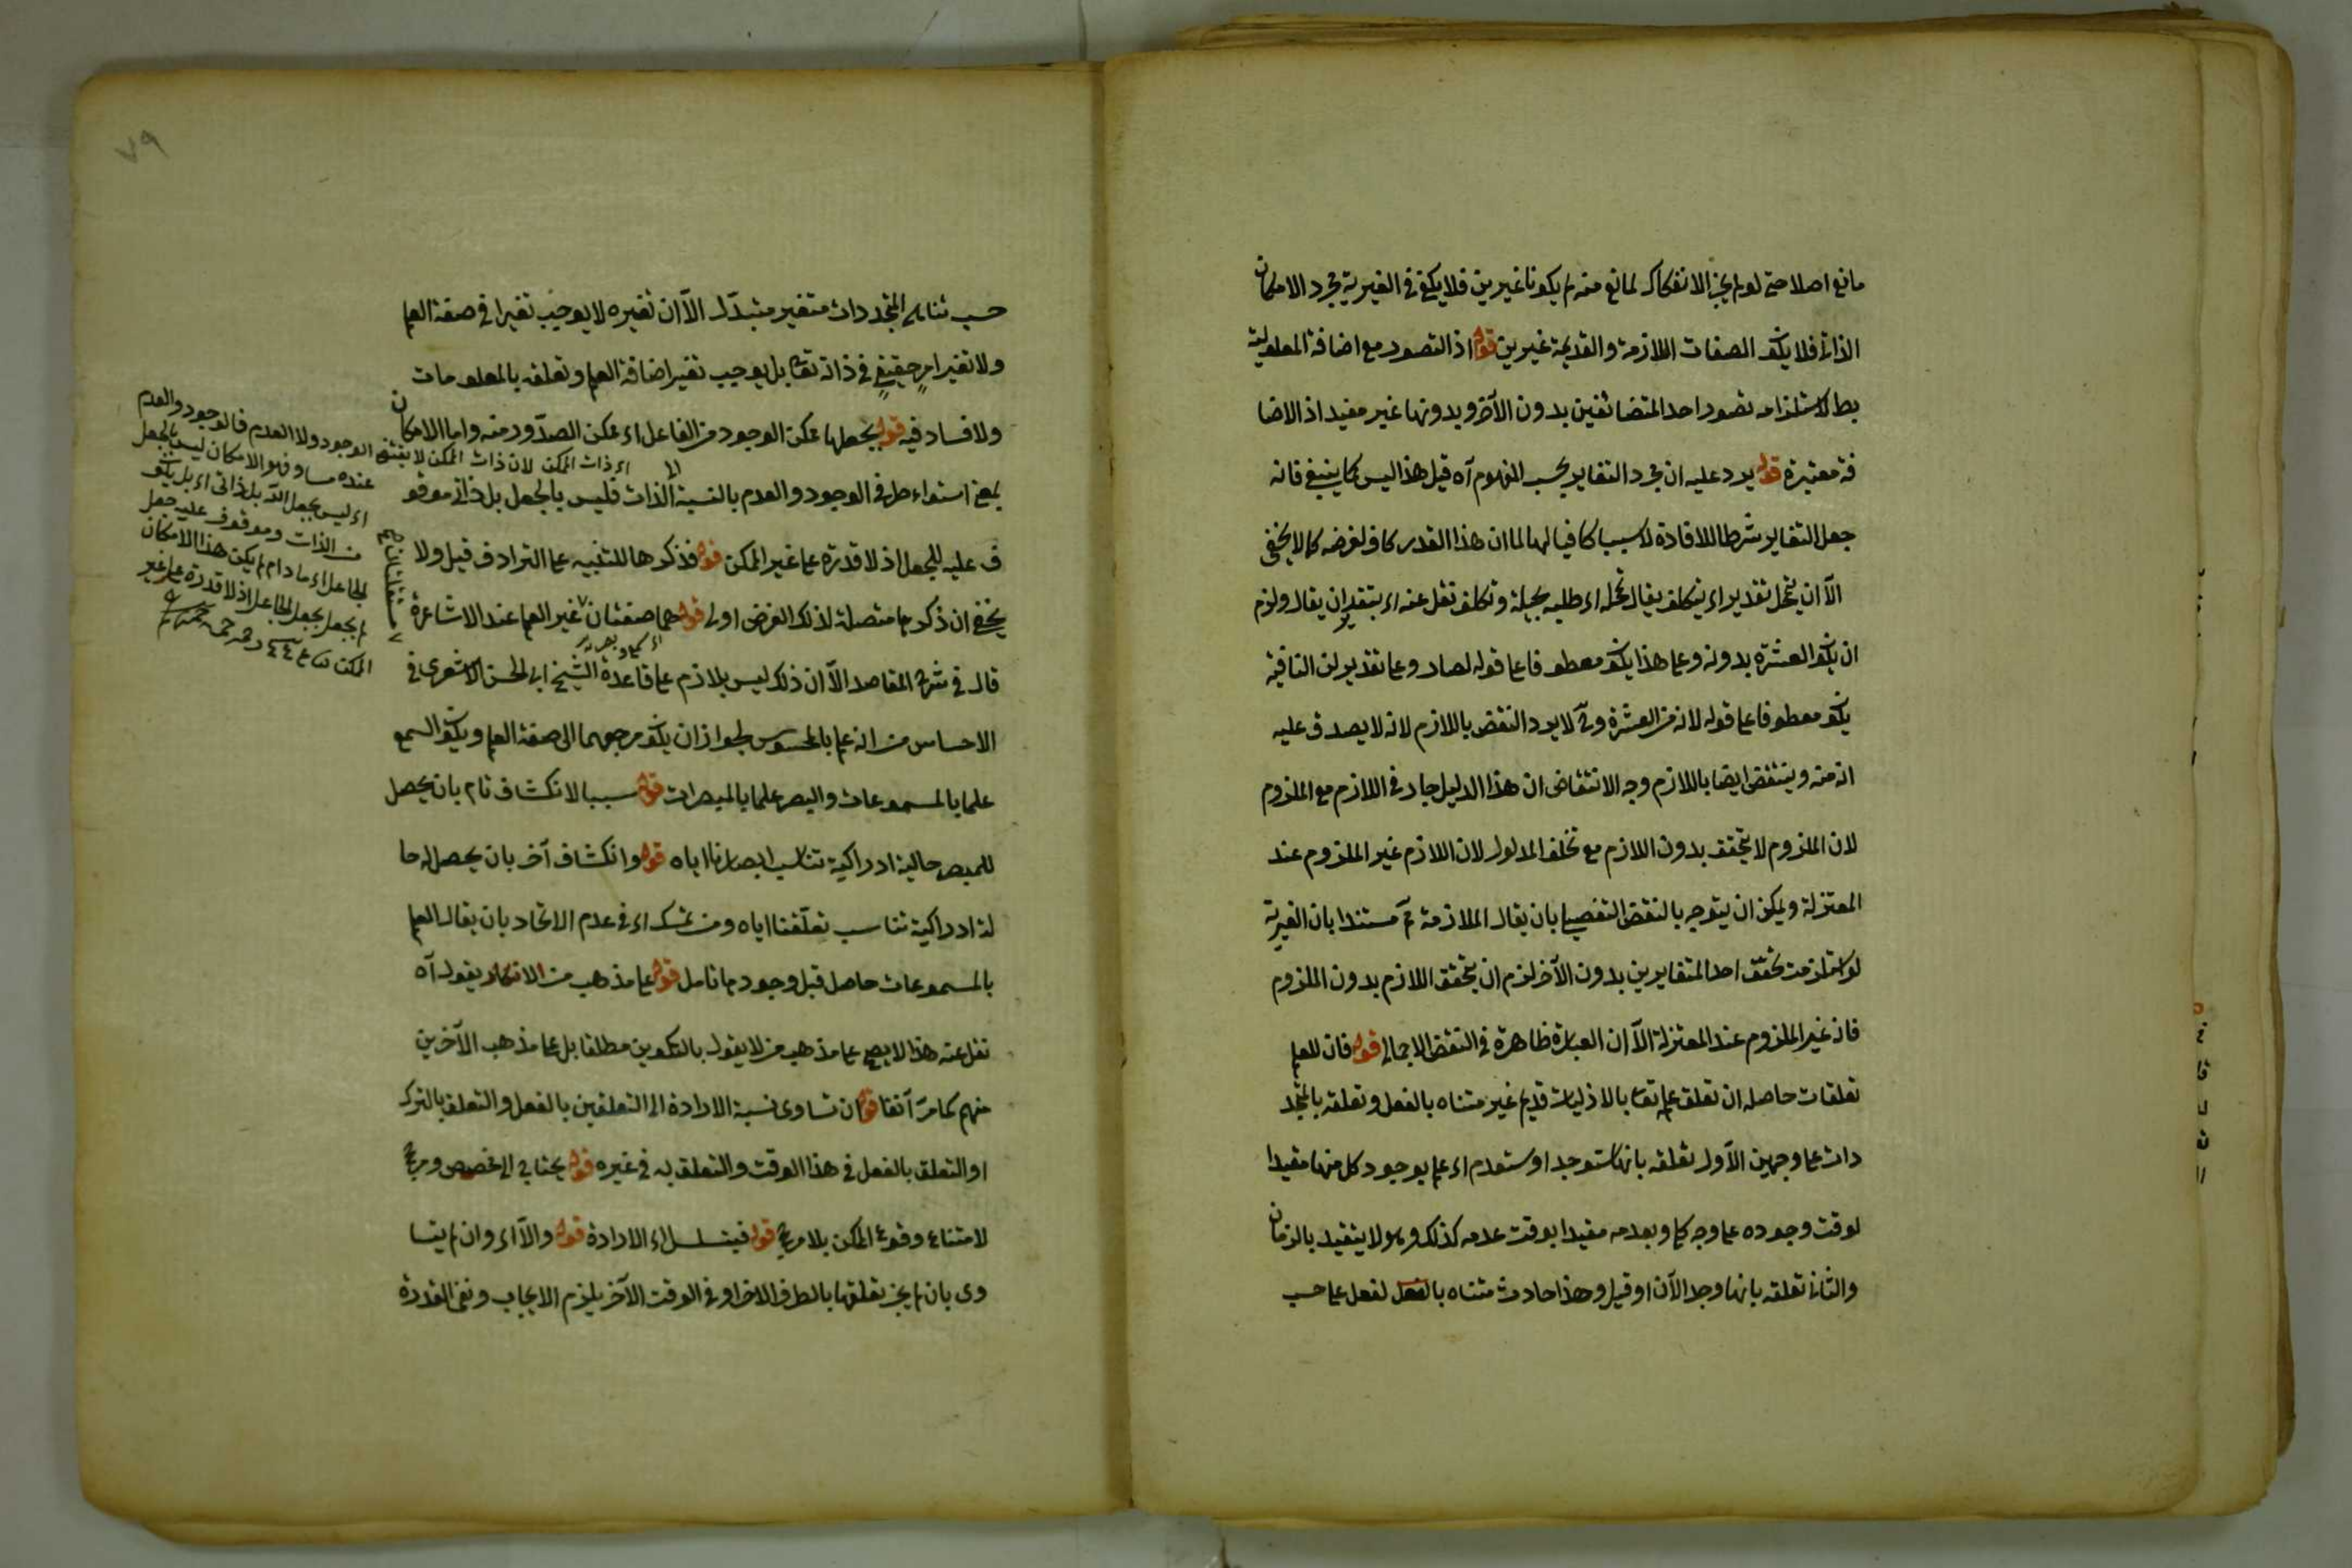 مانع اصلا حتى لو لم يجز الانفكاك لمانع منه لم يكونا غيرين فلا يكفى فى الغيرية مجرد الامكان
الذاتى فلا يكون الصفات اللازمة والقديمة غيرين قوله اذ التصور مع اضافة المعلولية
بط لاستلزامه تصور احد المتضائفين بدون الآخر وبدونها غير مفيد اذ الاضا
فة معتبرة قوله يرد عليه ان مجرد التغاير بحسب المفهوم آه قيل هذا ليس كما ينبغى فانه
جعل التغاير شرطا للافادة لا سببا كافيا لها لما ان هذا القدر كاف لغرضه كما لا يخفى
الآ ان يتمحل تقدير اى يتكلف يقال تمحله اى طلبه بحيلة وتكلف نقل عنه اى بتقدير ان يقال ولزم
ان يكون العشرة بدونه وعلى هذا يكون معطوفا على قوله لصار وعلى تقدير لن النافية
يكون معطوفا على قوله لانه من العشرة وح لا يرد النقض باللازم لانه لا يصدق عليه
انه منه وينتقض ايضا باللازم وجه الانتقاض ان هذا الدليل جار فى اللازم مع الملزوم
لان الملزوم لا يتحقق بدون اللازم مع تخلف المدلول لان اللازم غير الملزوم عند
المعتزلة ويمكن ان يتوجه بالنقض التفصيلى بان يقال الملازمة مم مستندا بان الغيرية
لو استلزمت تحقق احد المتغايرين بدون الآخر لزم ان يتحقق اللازم بدون الملزوم
فانه غير الملزوم عند المعتزلة الآ ان العبارة ظاهرة فى النقض الاجمالى قوله فان للعلم
تعلقات حاصله ان تعلق علمه تعا بالازليات قديم غير متناه بالفعل وتعلقه بالمتجد
دات على وجهين الاول تعلقه بانها ستوجد او ستعدم اى علم بوجود كل منها مقيدا
لوقت وجوده على وجه كلى وبعدمه مقيدا بوقت عدمه كذلك وهو لا يتقيد بالزمان
والثانى تعلقه بانها وجد الآن او قبل وهذا حادث متناه بالفعل لفعل على حسب
حسب تناهى المتجددات متغير متبدّل الآ ان تغيره لا يوجب تغيرا فى صفة العلم
ولا تغير امر حقيقى فى ذاته تعا بل يوجب تغير اضافة العلم وتعلقه بالمعلومات
ولا فساد فيه قوله بجعلها ممكن الوجود من الفاعل اى ممكن الصدّور منه واما الامكان
بمعنى استواء طرفى الوجود والعدم بالنسبة الى الذات فليس بالجعل بل ذاتى موقو
ف عليه للجعل اذ لا قدرة على غير الممكن قوله فذكرها للتنبيه على الترادف قيل ولا
يخفى ان ذكرها متصلة لذلك الغرض اولى قوله هما صفتان غير العلم عند الاشاعرة
قال فى شرح المقاصد الآ ان ذلك ليس بلازم على قاعدة الشيخ ابى الحسن الاشعرى فى
الاحساس من انه علم بالمحسوس لجواز ان يكون مرجعهما الى صفة العلم ويكون السمع
علما بالمسموعات والبصر علما بالمبصرات قوله سببا لانكشاف تام بان يحصل
للمبصر حالية ادراكية تناسب ابصارنا اياه قوله وانكشاف آخر بان يحصل له حا
لة ادراكية تناسب تعلّقنا اياه ومن تمسك اى فى عدم الاتحاد بان يقال العلم
بالمسموعات حاصل قبل وجودها تأمل قوله على مذهب من يقول آه
نقل عنه هذا لا يصح على مذهب من لا يقول بالتكوين مطلقا بل على مذهب الآخرين
منهم كما مرّ آنفا قوله ان تساوى نسبة الارادة الى التعلقين بالفعل والتعلق بالترك
او التعلق بالفعل فى هذا الوقت والتعلق به فى غيره قوله يحتاج الى مخصص ومرجح
لامتناع وقوع الممكن بلا مرجح قوله فيتسلسل اى الارادة قوله والآ اى وان لم يتسا
وى بان لم يجز تعلقها بالطرف الاخر او فى الوقت الآخر يلزم الايجاب ونفى القدرة
اى ذات الممكن لان ذات الممكن لا يقتضى الوجود ولا العدم فالوجود والعدم
عنده مساو فهو الامكان ليس بالجعل
اى ليس بجعل الله بل ذاتى اى بل يكون
من الذات وموقوف عليه جعل
الجاعل اى مادام لم يكن هذا الامكان
لم يجعل بجعل الجاعل اذ لا قدرة على غير
الممكن
٧٩